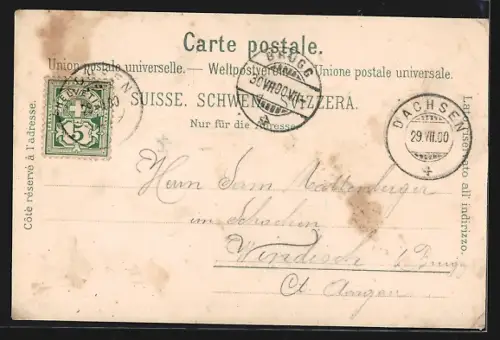 Carte postale.
Union postale universelle. — Weltpostverein. — Unione postale universale.
SUISSE. SCHWEIZ. SVIZZERA.
Nur für die Adresse.
Côté réservé à l'adresse.
Lato riservato all' indirizzo.
HELVETIA
5
BRUGG
30.VII.00.VII
DACHSEN
29.VII.00
Herrn Sam
im Schachen
Windisch b/Brugg
Ct. Aargau